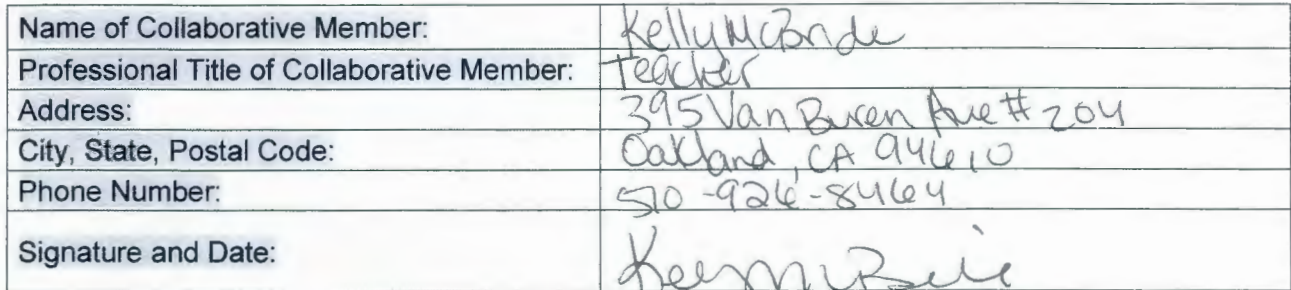 Name of Collaborative Member: Kelly McBride
Professional Title of Collaborative Member: Teacher
Address: 395 Van Buren Ave # 204
City, State, Postal Code: Oakland, CA 94610
Phone Number: 510-926-8464
Signature and Date: Kelly McBride